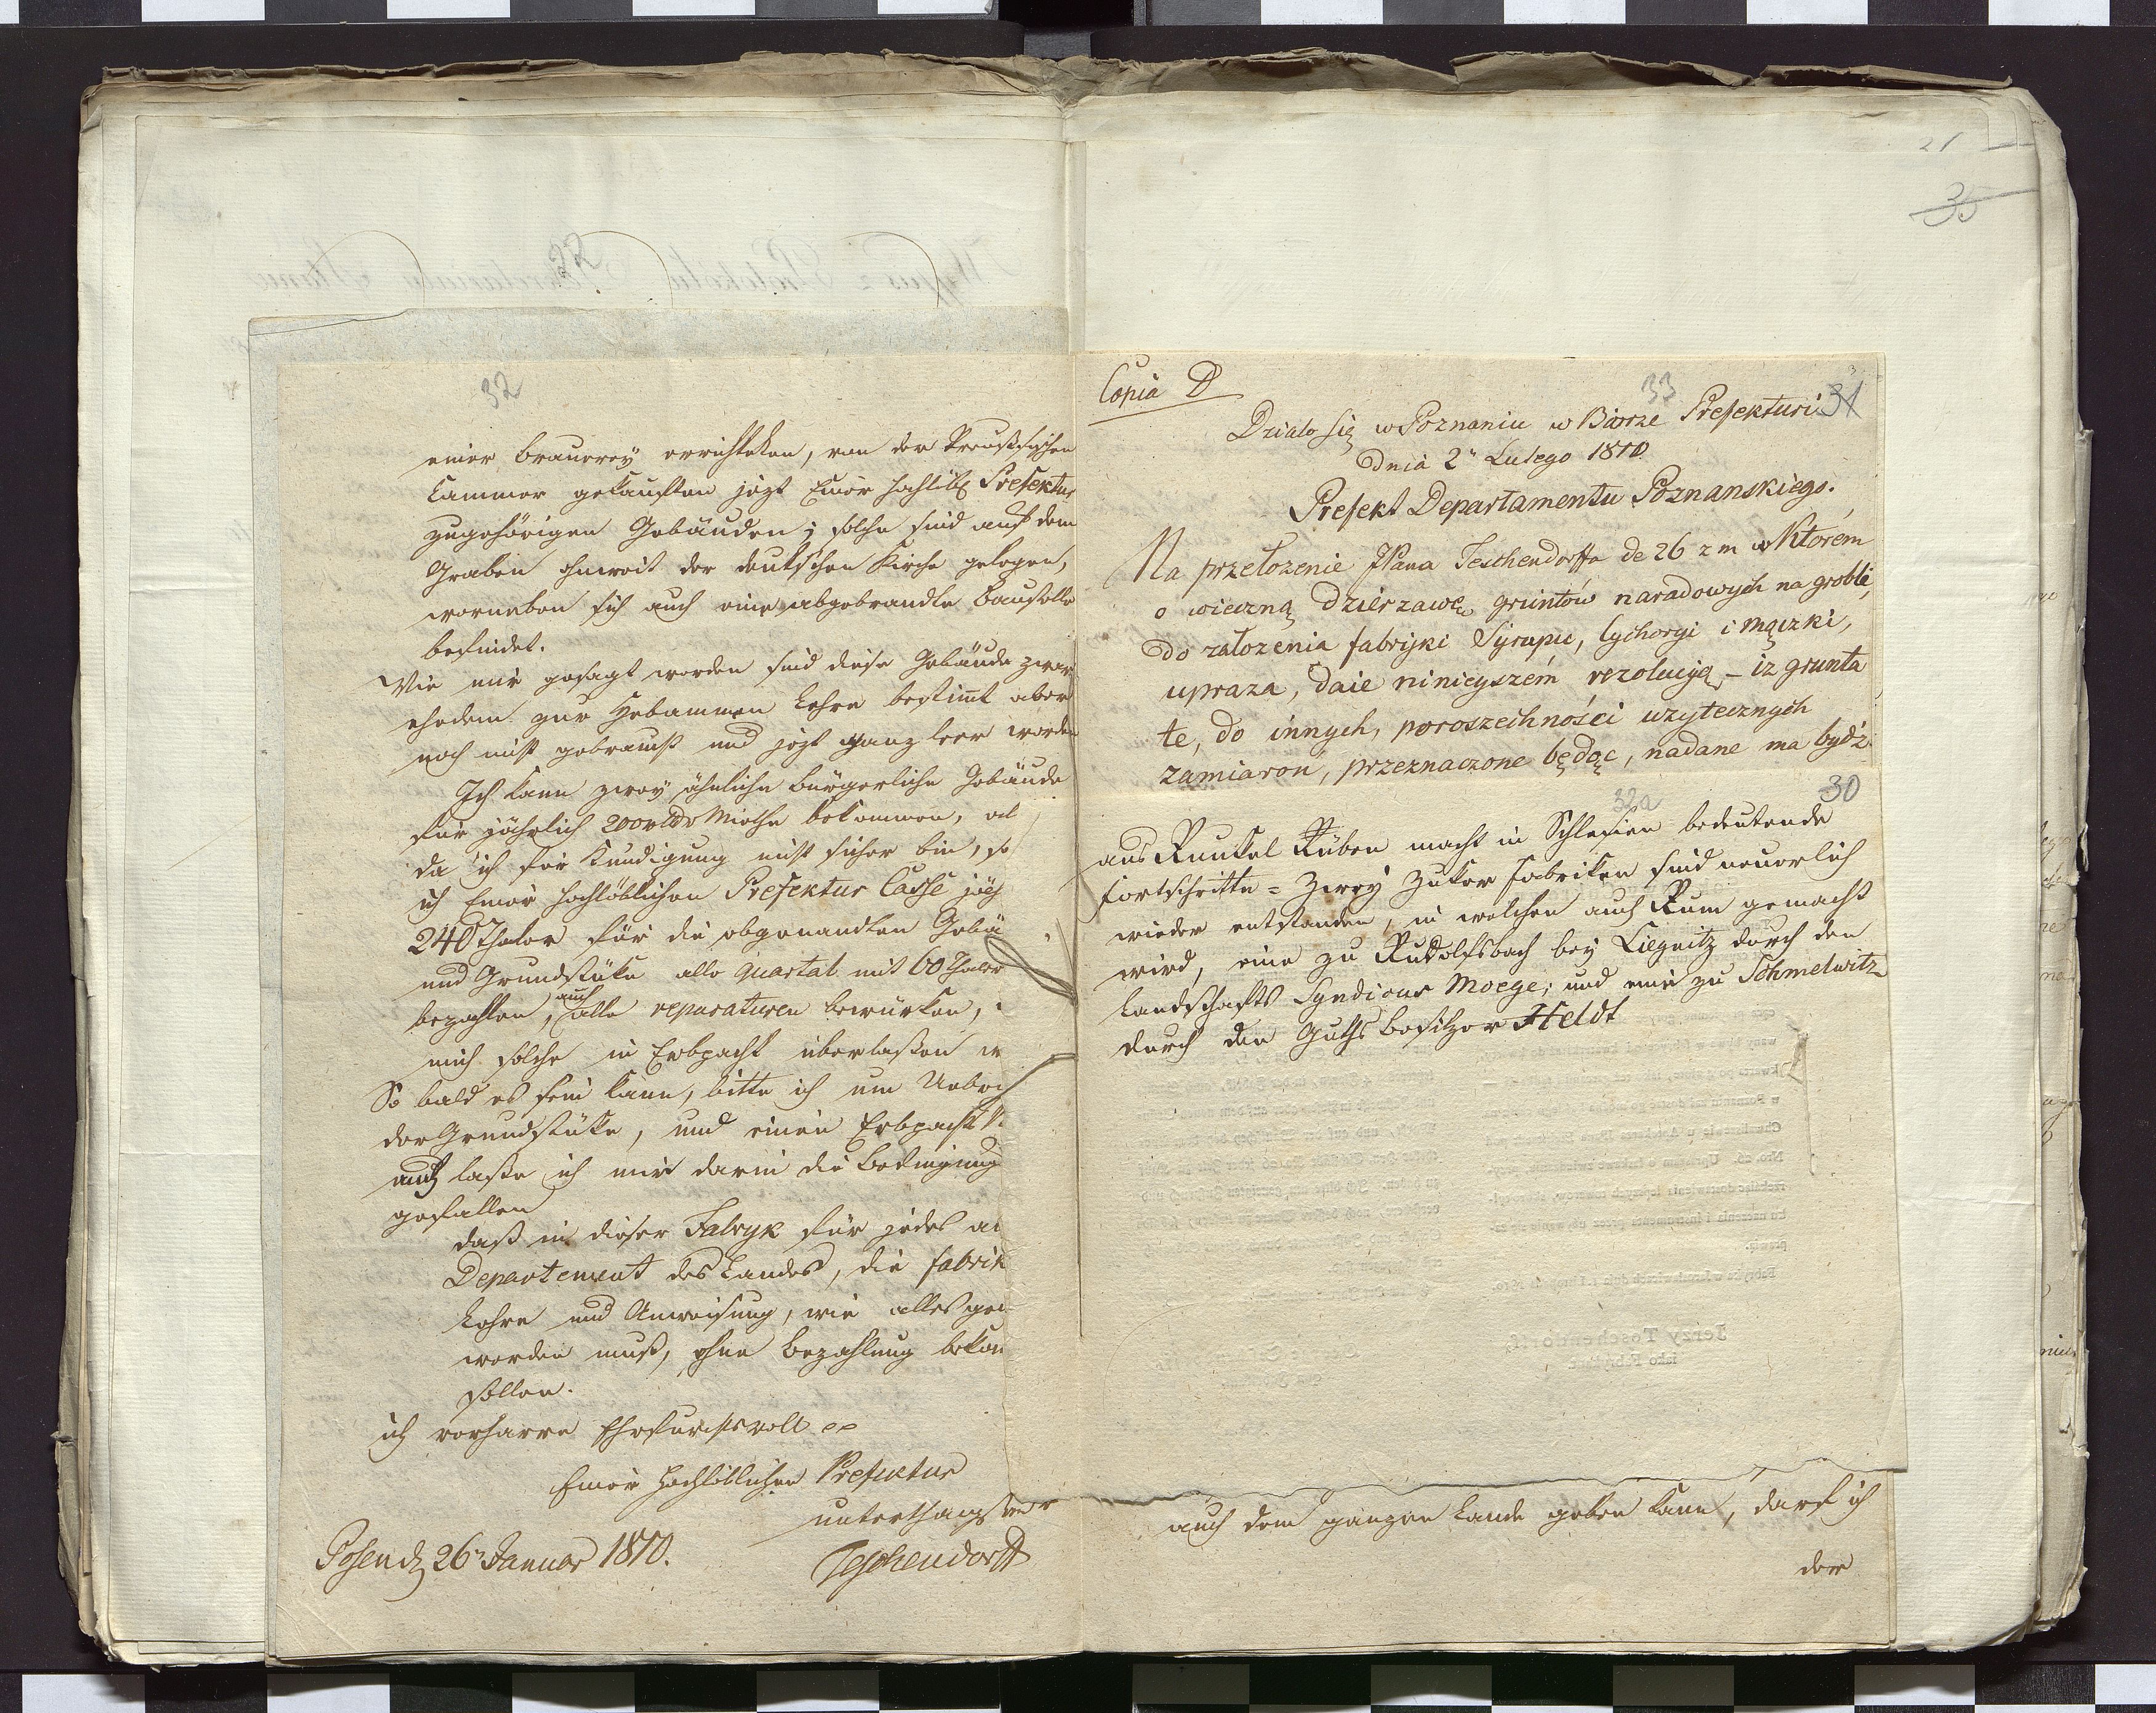 32
einer Brauerey errichteten, von der Preußischen
Cammer gekauften jezt Einer Hochlöbl Prefektur
zugehörigen Gebäuden; solche sind auf dem
Graben ohnweit der deutschen Kirche gelegen,
worneben sich auch eine abgebrandte Baustelle
befindet.
Wie mir gesagt worden sind diese Gebäude zwar
ehedem zur Hebammen Lehre bestimt aber
noch nicht gebraucht und jezt ganz leer worden
Ich kann zwey ähnliche bürgerliche Gebäude
für jährlich 200 rtlr Miethe bekommen, al
da ich für Kündigung nicht sicher bin, so
ich Einer Hochlöblichen Prefektur Casse jäh
240 Thaler für die obgenandten Gebä
und Grundstüke alle Quartal mit 60 Thaler
bezahlen, auch alle reparaturen bewürken,
mich solche in Erbpacht überlaßen w
So bald es sein kann, bitte ich um Ueberg
der Grundstüke, und einen Erbpacht
auch laße ich mir darin die Bedingung
gefallen
daß in dieser Fabryk für jedes an
Departement des Landes, die fabrik
Lehre und Anweisung, wie alles ge
werden muß, ohne Bezahlung bekom
sollen.
ich verharre Ehrfurchtsvoll
Einer Hochlöblichen Prefektur
unterthänigster
Posen d 26n Januar 1810.
Teschendorff
21
35
Copia D
33
31
Działo się w Poznaniu w Biorze Prefekturi
Dnia 2n Lutego 1810
Prefekt Departamentu Poznanskiego.
Na przełozenie JPana Teschendorffa de 26 z m w Ktorém
o wieczną dzierzawę gruntów narodowych na grobli,
do załozenia fabryki Syrupu, Cychoryi i mączki,
uprasza, daie ninieyszém rezolucyą, – iz grunta
te, do innych, powszechności uzytecznych
zamiarow, przeznaczone będąc, nadane ma bydź
32a
30
aus Runkel Rüben macht in Schlesien bedeutende
Fortschritte = Zwey Zuker Fabriken sind neuerlich
wieder entstanden, in welchen auch Rum gemacht
wird, eine zu Rudolfsbach bey Liegnitz durch den
Landschafts Syndicus Moege; und eine zu Schmelwitz
durch den Guths Besitzer Heldt
Jerzy Teschendorff,
iako Fabrykant
auch dem ganzen Lande geben kann, darf ich
der